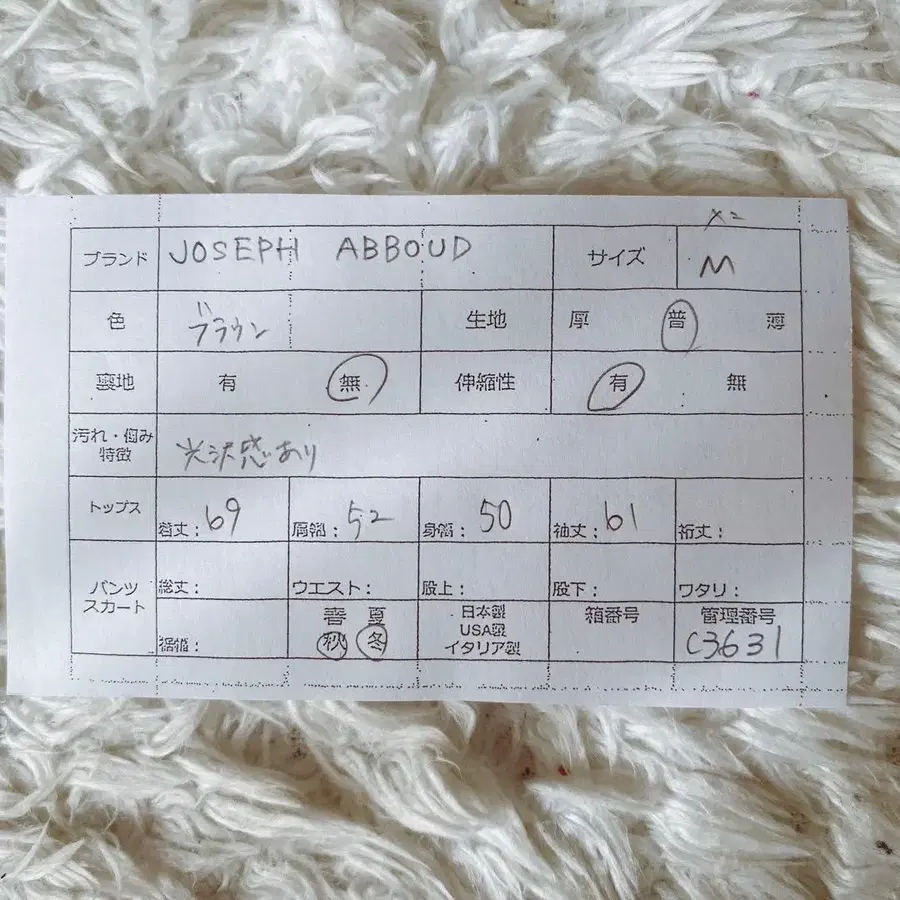 メモ
ブランド JOSEPH ABBOUD サイズ M
色 ブラウン 生地 厚 普 薄
裏地 有 無 伸縮性 有 無
汚れ・傷み
特徴 光沢感あり
トップス 着丈：69 肩幅：52 身幅：50 袖丈：61 裄丈：
パンツ
スカート 総丈： ウエスト： 股上： 股下： ワタリ：
裾幅： 春 夏
秋 冬
日本製
USA製
イタリア製
箱番号
管理番号
C3631